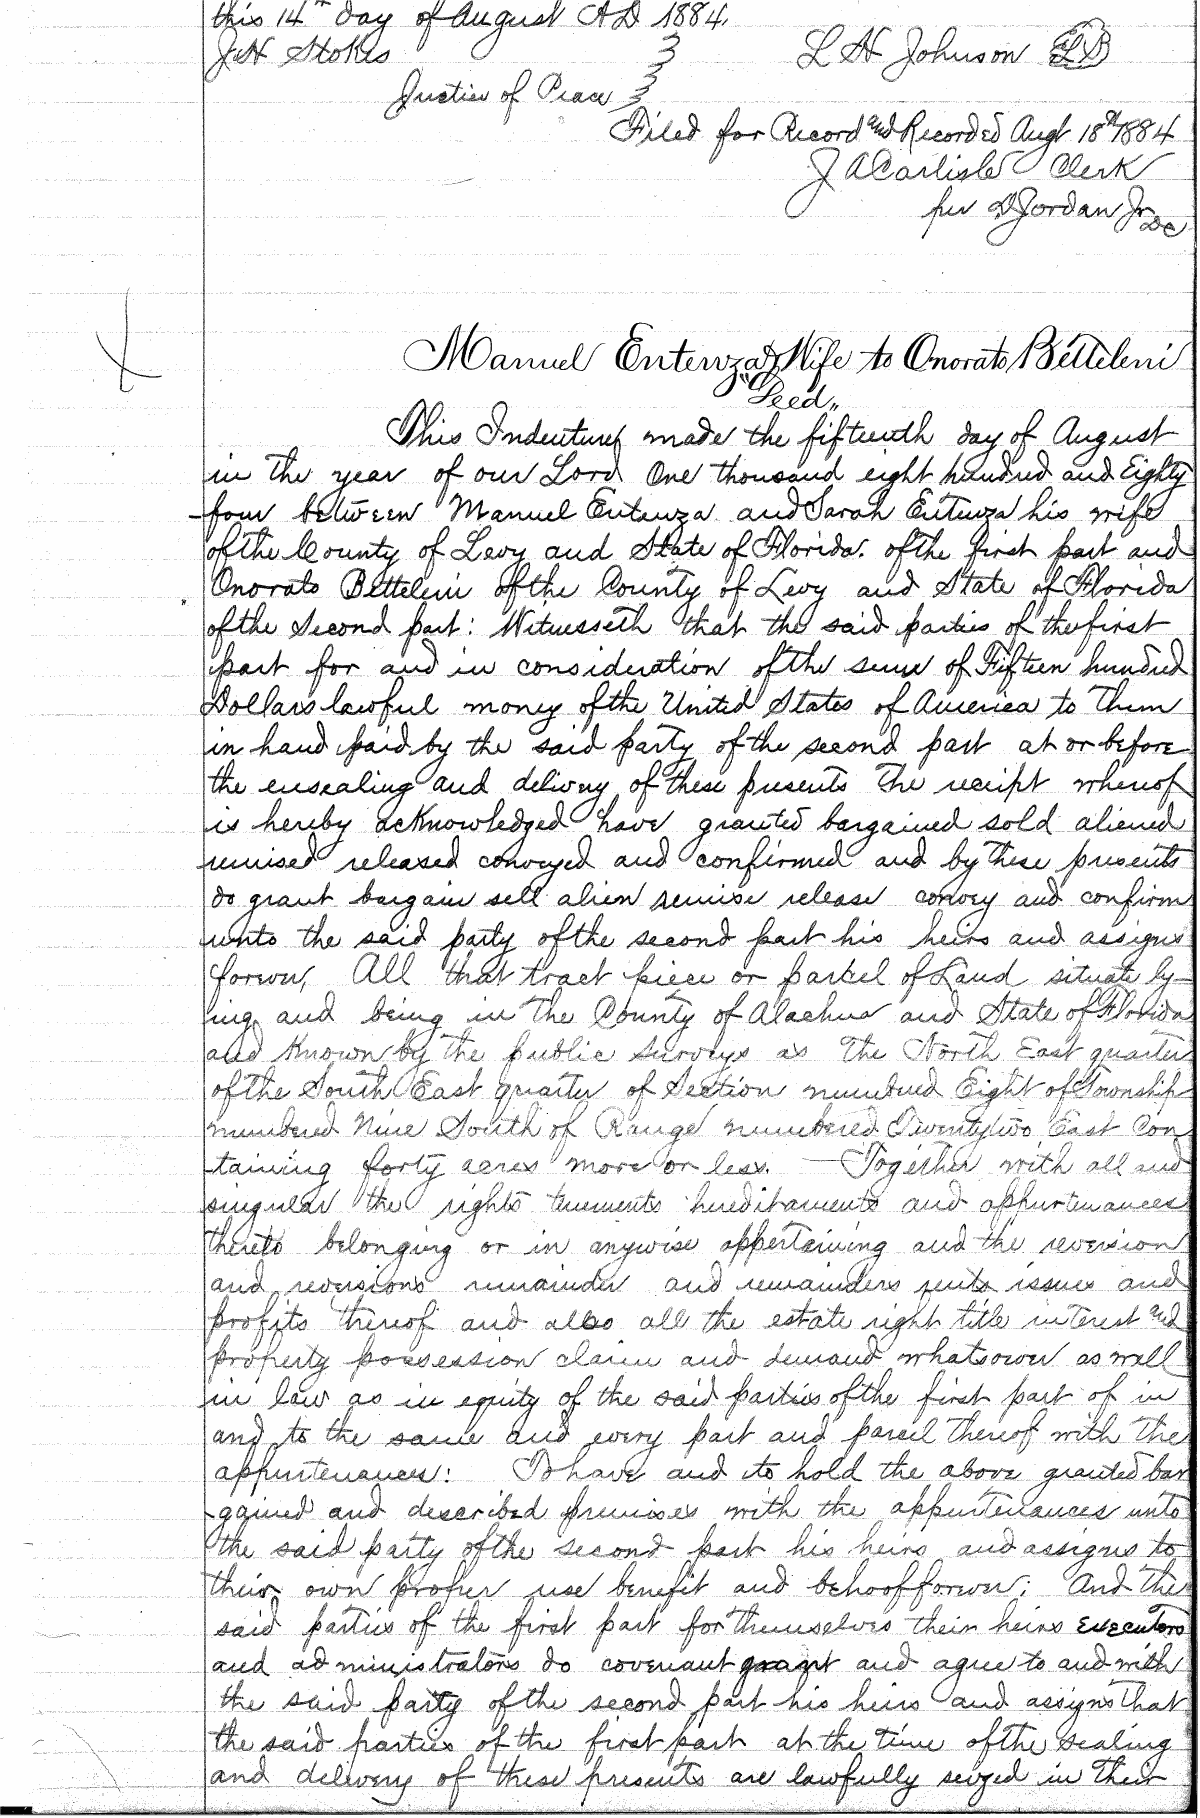 this 14th day of August AD 1884.
J.H Stokes
L H Johnson LS
Justice of Peace
Filed for Record and Recorded Augt 18th 1884
J A Carlisle Clerk
per D Jordan Jr DC
Manuel Entenza & Wife to Onorato Betteleni
"Deed"
This Indenture made the fifteenth day of August
in the year of our Lord One thousand eight hundred and Eighty
four between Manuel Entenza and Sarah Entenza his wife
of the County of Levy and State of Florida. of the first part and
Onorato Betteleni of the County of Levy and State of Florida
of the Second part: Witnesseth that the said parties of the first
part for and in consideration of the sum of Fifteen hundred
Dollars lawful money of the United States of America to Them
in hand paid by the said party of the second part at or before
the ensealing and delivery of these presents The receipt whereof
is hereby acknowledged have granted bargained sold aliened
remised released conveyed and confirmed and by these presents
do grant bargain sell alien remise release convey and confirm
unto the said party of the second part his heirs and assigns
forever, All that tract piece or parcel of Land situate ly-
ing and being in the County of Alachua and State of Florida
and Known by the public surveys as The North East quarter
of the South East quarter of Section numbered Eight of Township
numbered Nine South of Range numbered Twenty two East Con
taining forty acres more or less. — Together with all and
singular the rights tenements hereditaments and appurtenances
thereto belonging or in anywise appertaining and the reversion
and reversions remainder and remainders rents issues and
profits thereof and also all the estate right title interest and
property possession claim and demand whatsoever as well
in law as in equity of the said parties of the first part of in
and to the same and every part and parcel thereof with the
appurtenances: To have and to hold the above granted bar
gained and described premises with the appurtenances unto
the said party of the second part his heirs and assigns to
their own proper use benefit and behoof forever; And the
said parties of the first part for themselves their heirs executors
and administrators do covenant grant and agree to and with
the said party of the second part his heirs and assigns that
the said parties of the first part at the time of the sealing
and delivery of these presents are lawfully seized in their